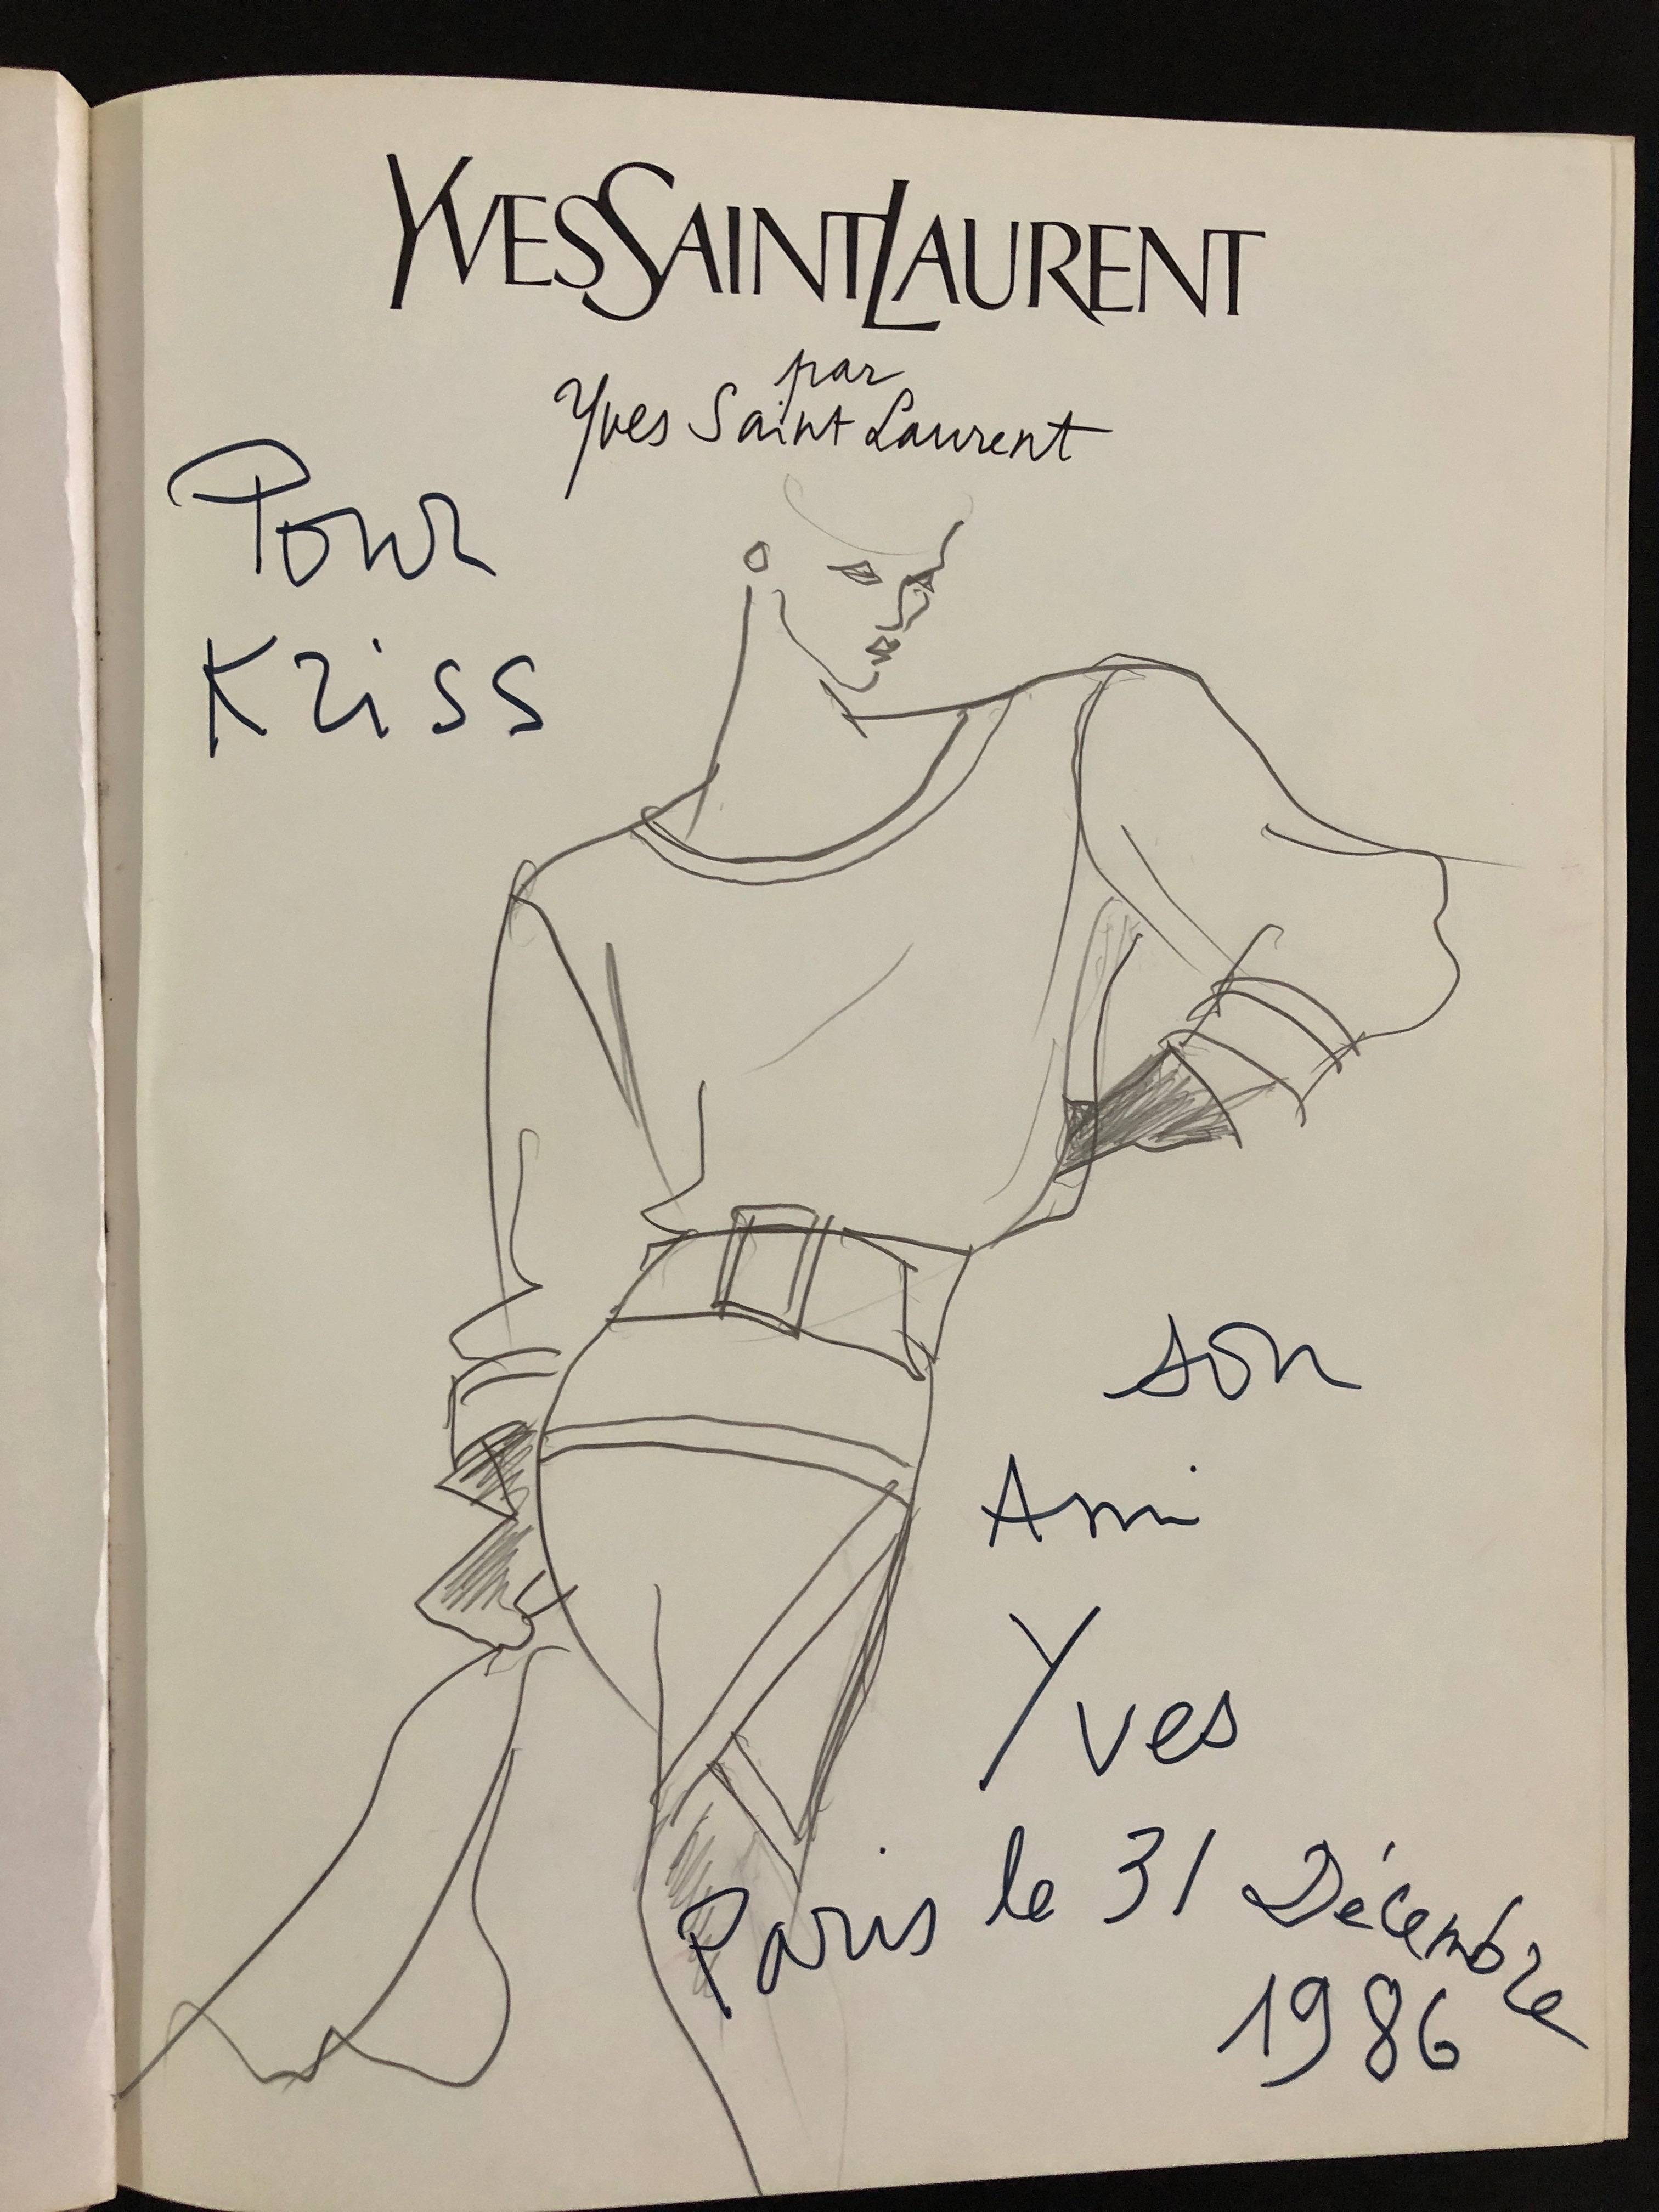 YVESSAINTLAURENT
par
Yves Saint Laurent
Pour
Kriss
son
Ami
Yves
Paris le 31 Décembre
1986